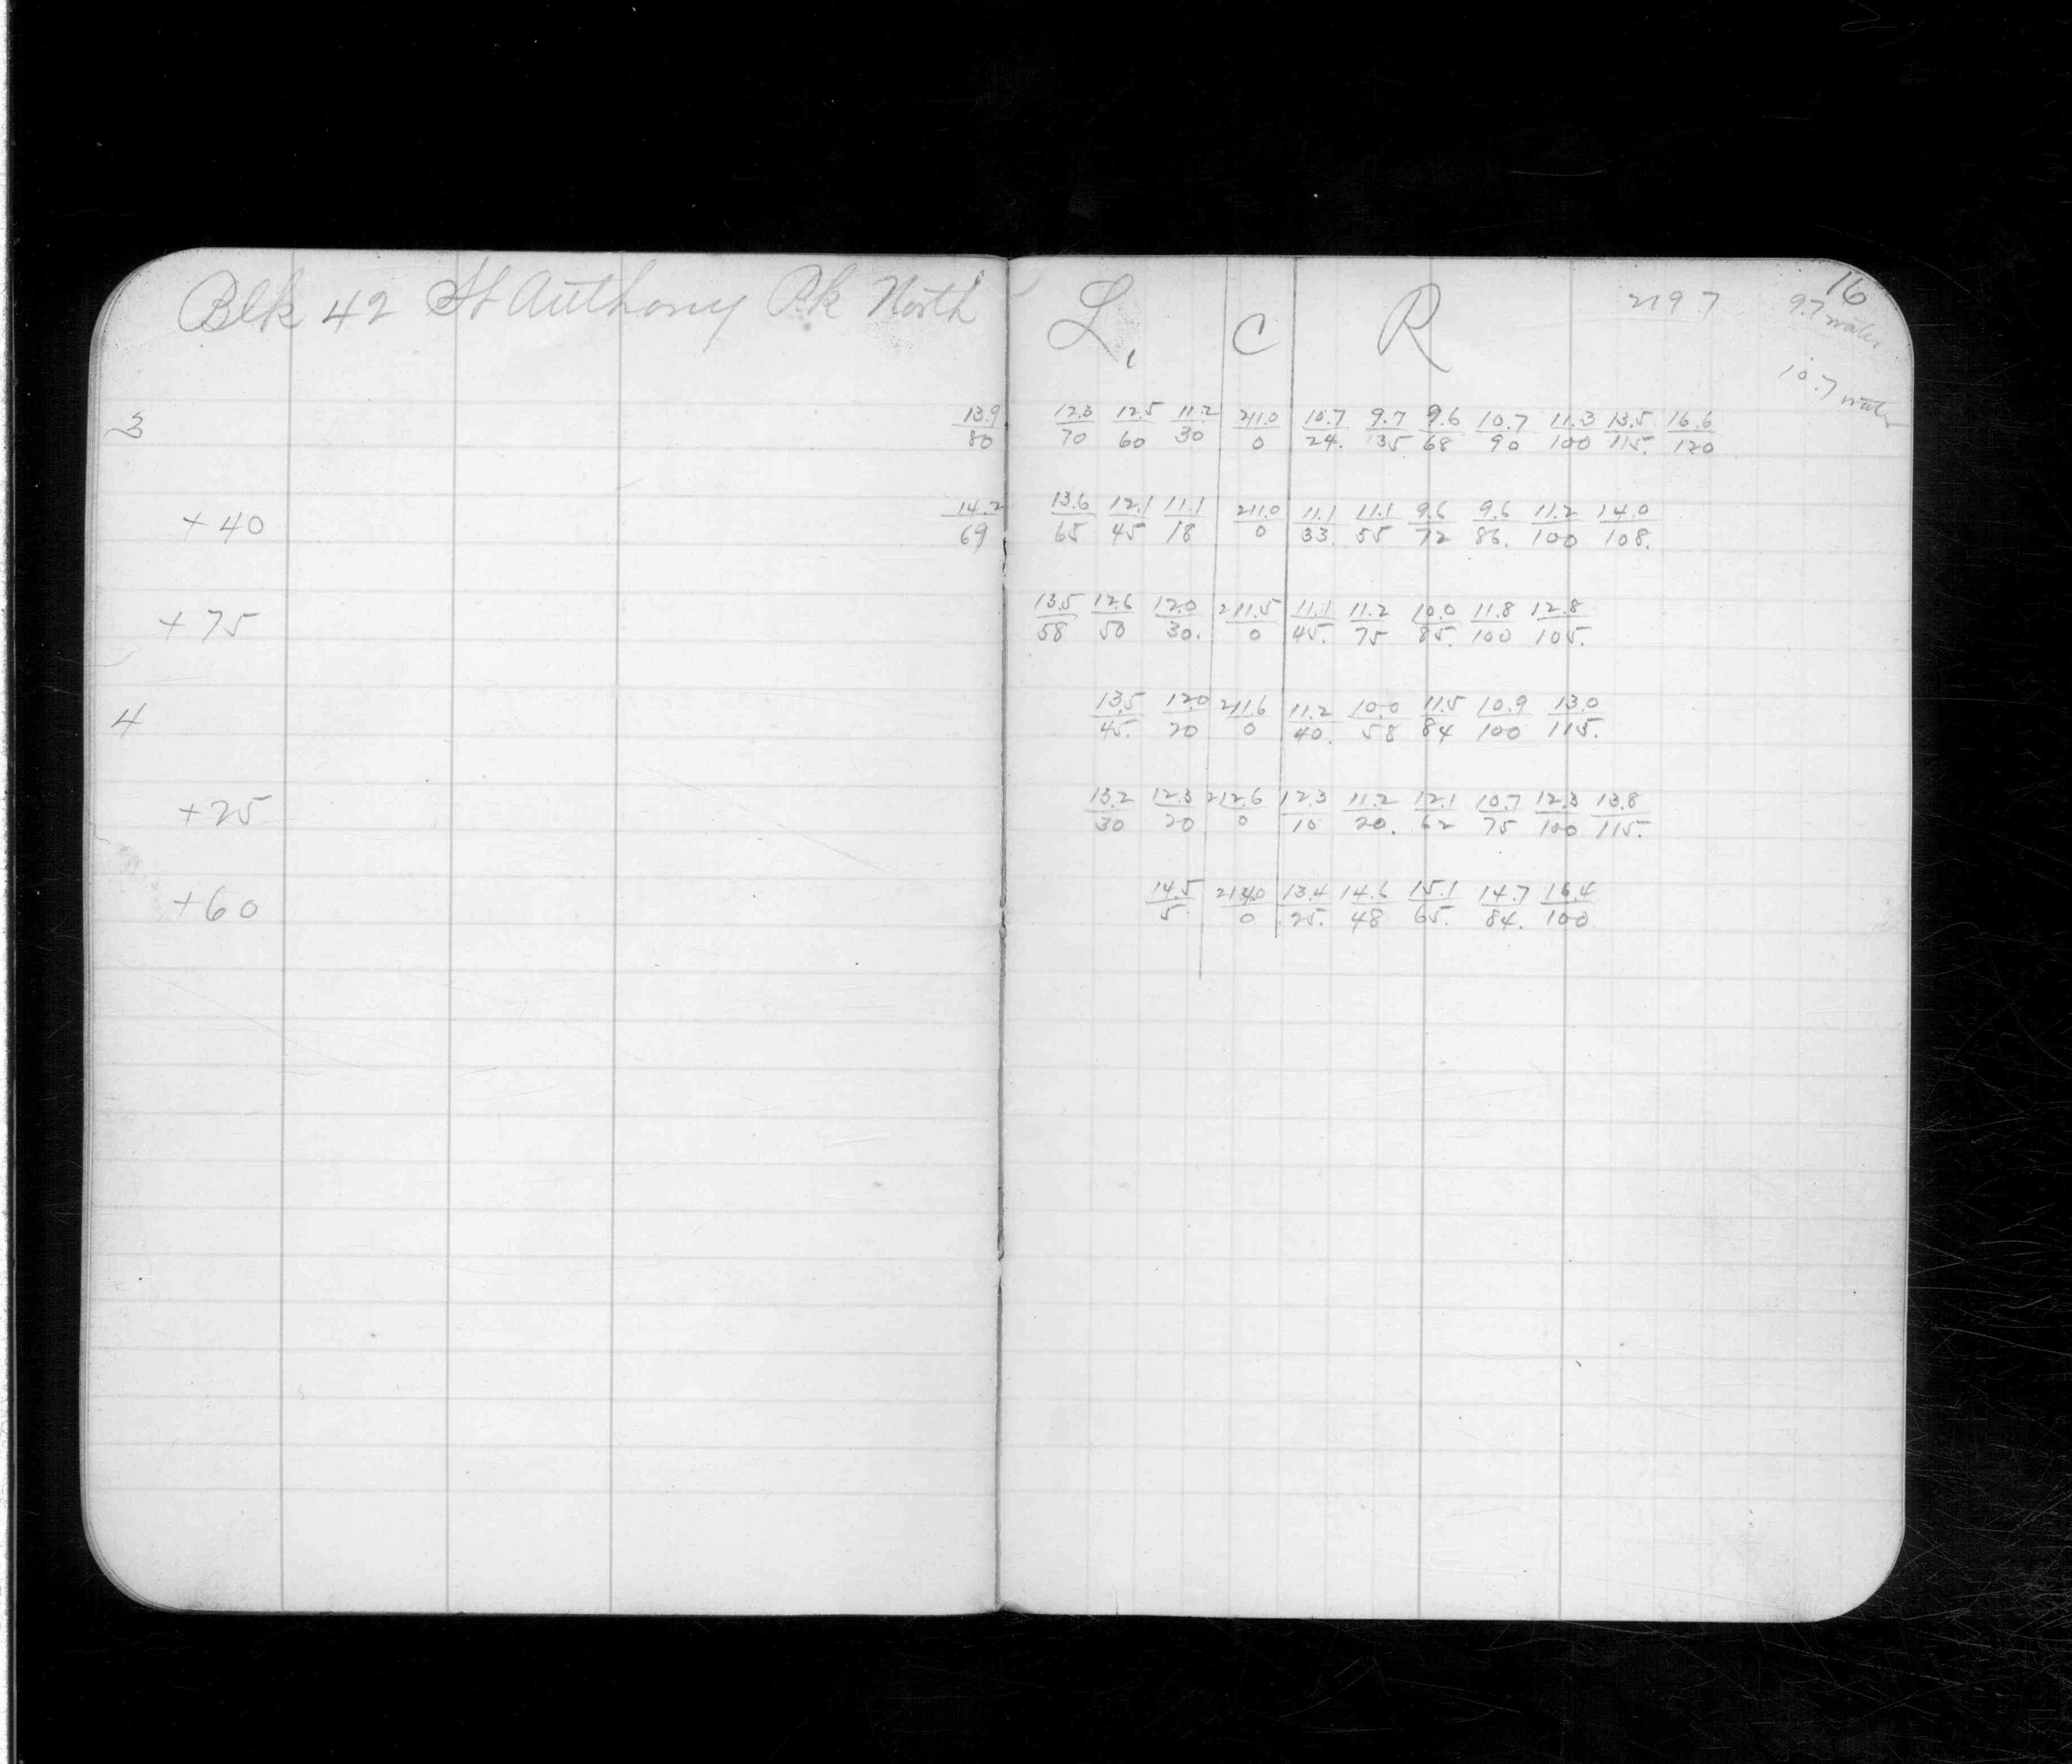 Blk 42 St Anthony Pk North L. C R 219.7 16
9.7 water
10.7 water
3 13.9/80 12.3/70 12.5/60 11.2/30 211.0/0 10.7/24. 9.7/35 9.6/68 10.7/90 11.3/100 13.5/115. 16.6/120
+40 14.2/69 13.6/65 12.1/45 11.1/18 211.0/0 11.1/33. 11.1/55 9.6/72 9.6/86. 11.2/100 14.0/108.
+75 13.5/58 12.6/50 12.0/30. 211.5/0 11.1/45. 11.2/75 10.0/85. 11.8/100 12.8/105.
4 13.5/45. 12.0/20 211.6/0 11.2/40. 10.0/58 11.5/84 10.9/100 13.0/115.
+25 13.2/30 12.3/20 212.6/0 12.3/10 11.2/20. 12.1/62 10.7/75 12.3/100 13.8/115.
+60 14.5/5 214.0/0 13.4/25. 14.6/48 15.1/65. 14.7/84. 16.4/100